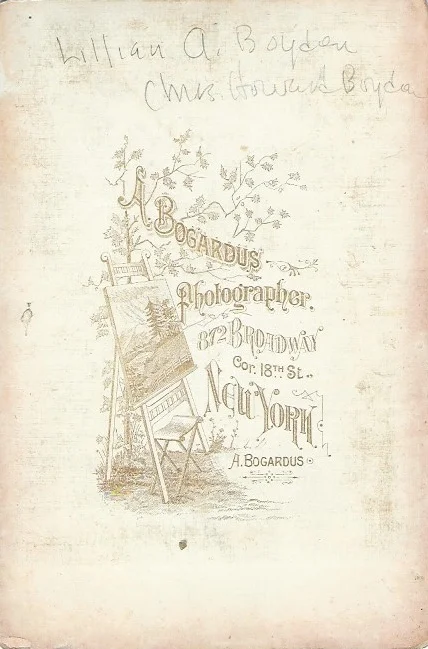 Lillian A. Boyden
(Mrs. Howard Boyden
A. Bogardus
Photographer.
872 Broadway
Cor. 18th St.
New York.
A. Bogardus